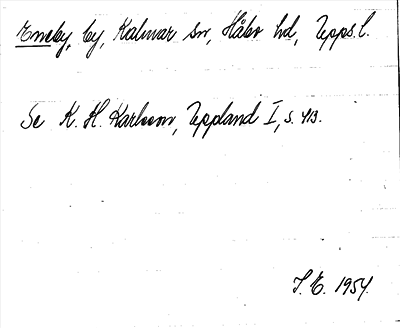 Emeby, by, Kalmar sn, Håbo hd, Upps.l.
Se K. H. Karlsson, Uppland I, s. 413.
S. E. 1954.